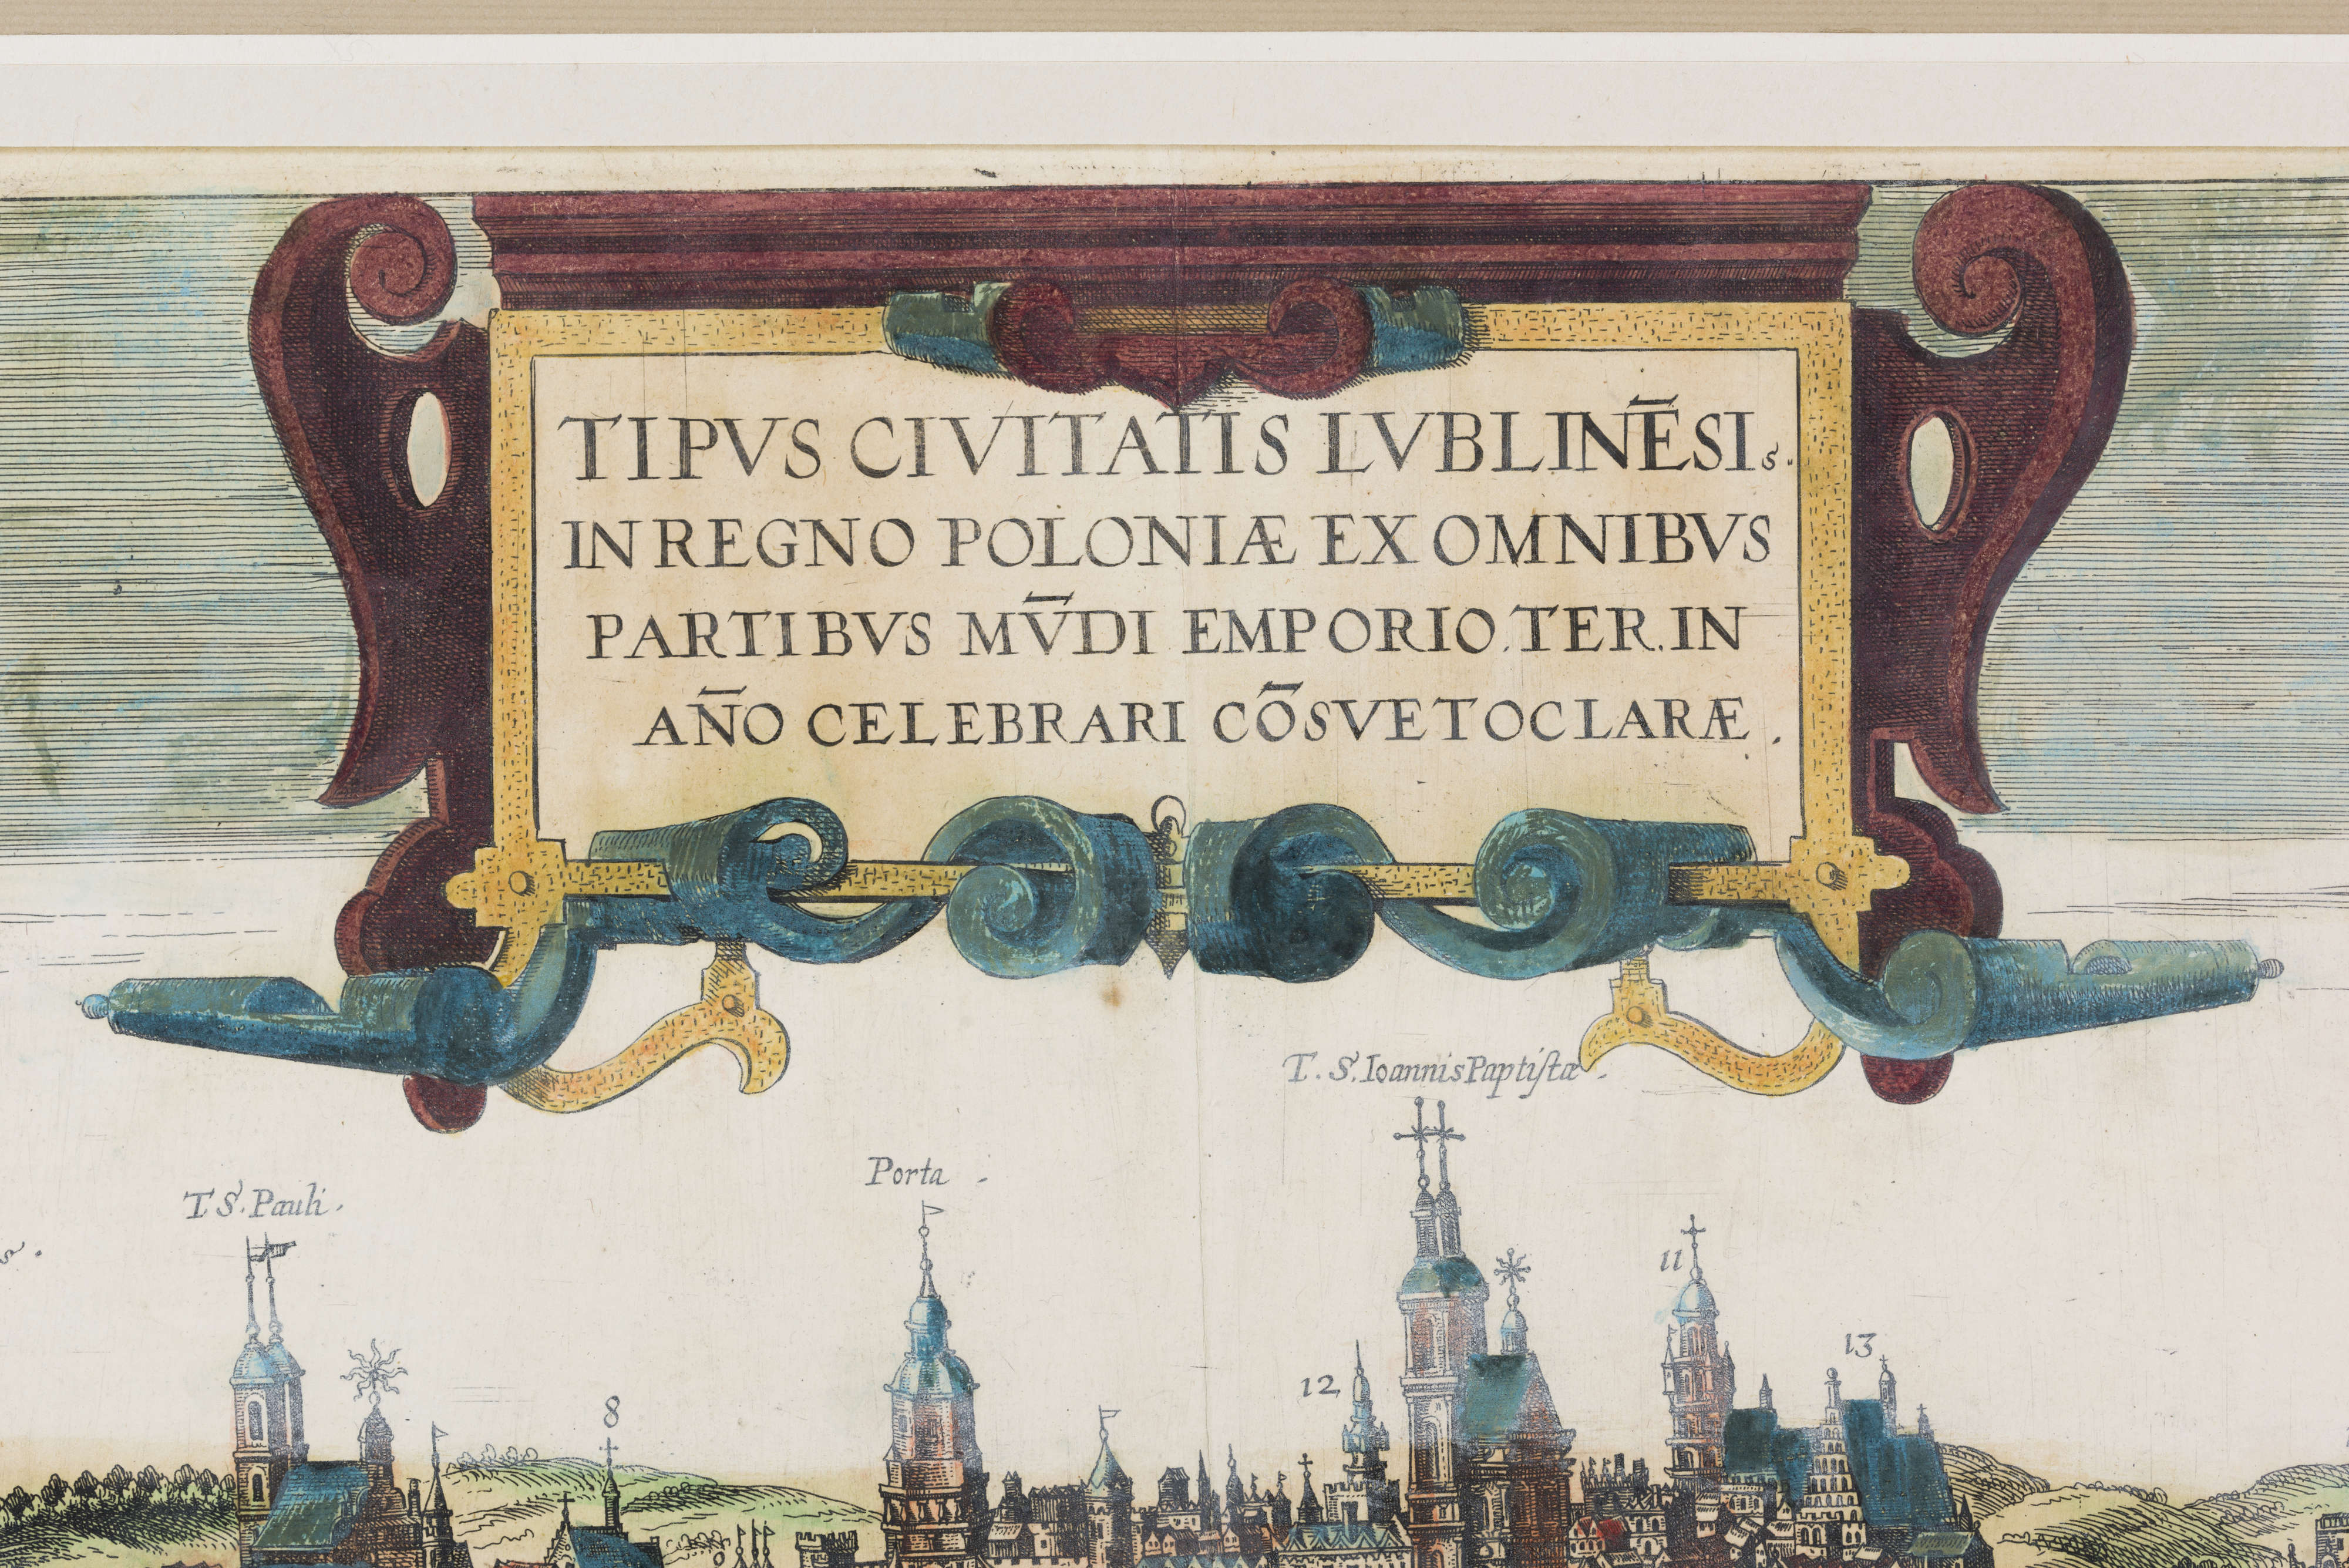 TIPVS CIVITATIS LVBLINĒSIs.
IN REGNO POLONIÆ EX OMNIBVS
PARTIBVS MV̄DI EMPORIO. TER. IN
AN̄O CELEBRARI CŌSVETO CLARÆ.
T. S. Ioannis Paptistæ.
Porta.
T S. Pauli.
s.
11
13
12
8